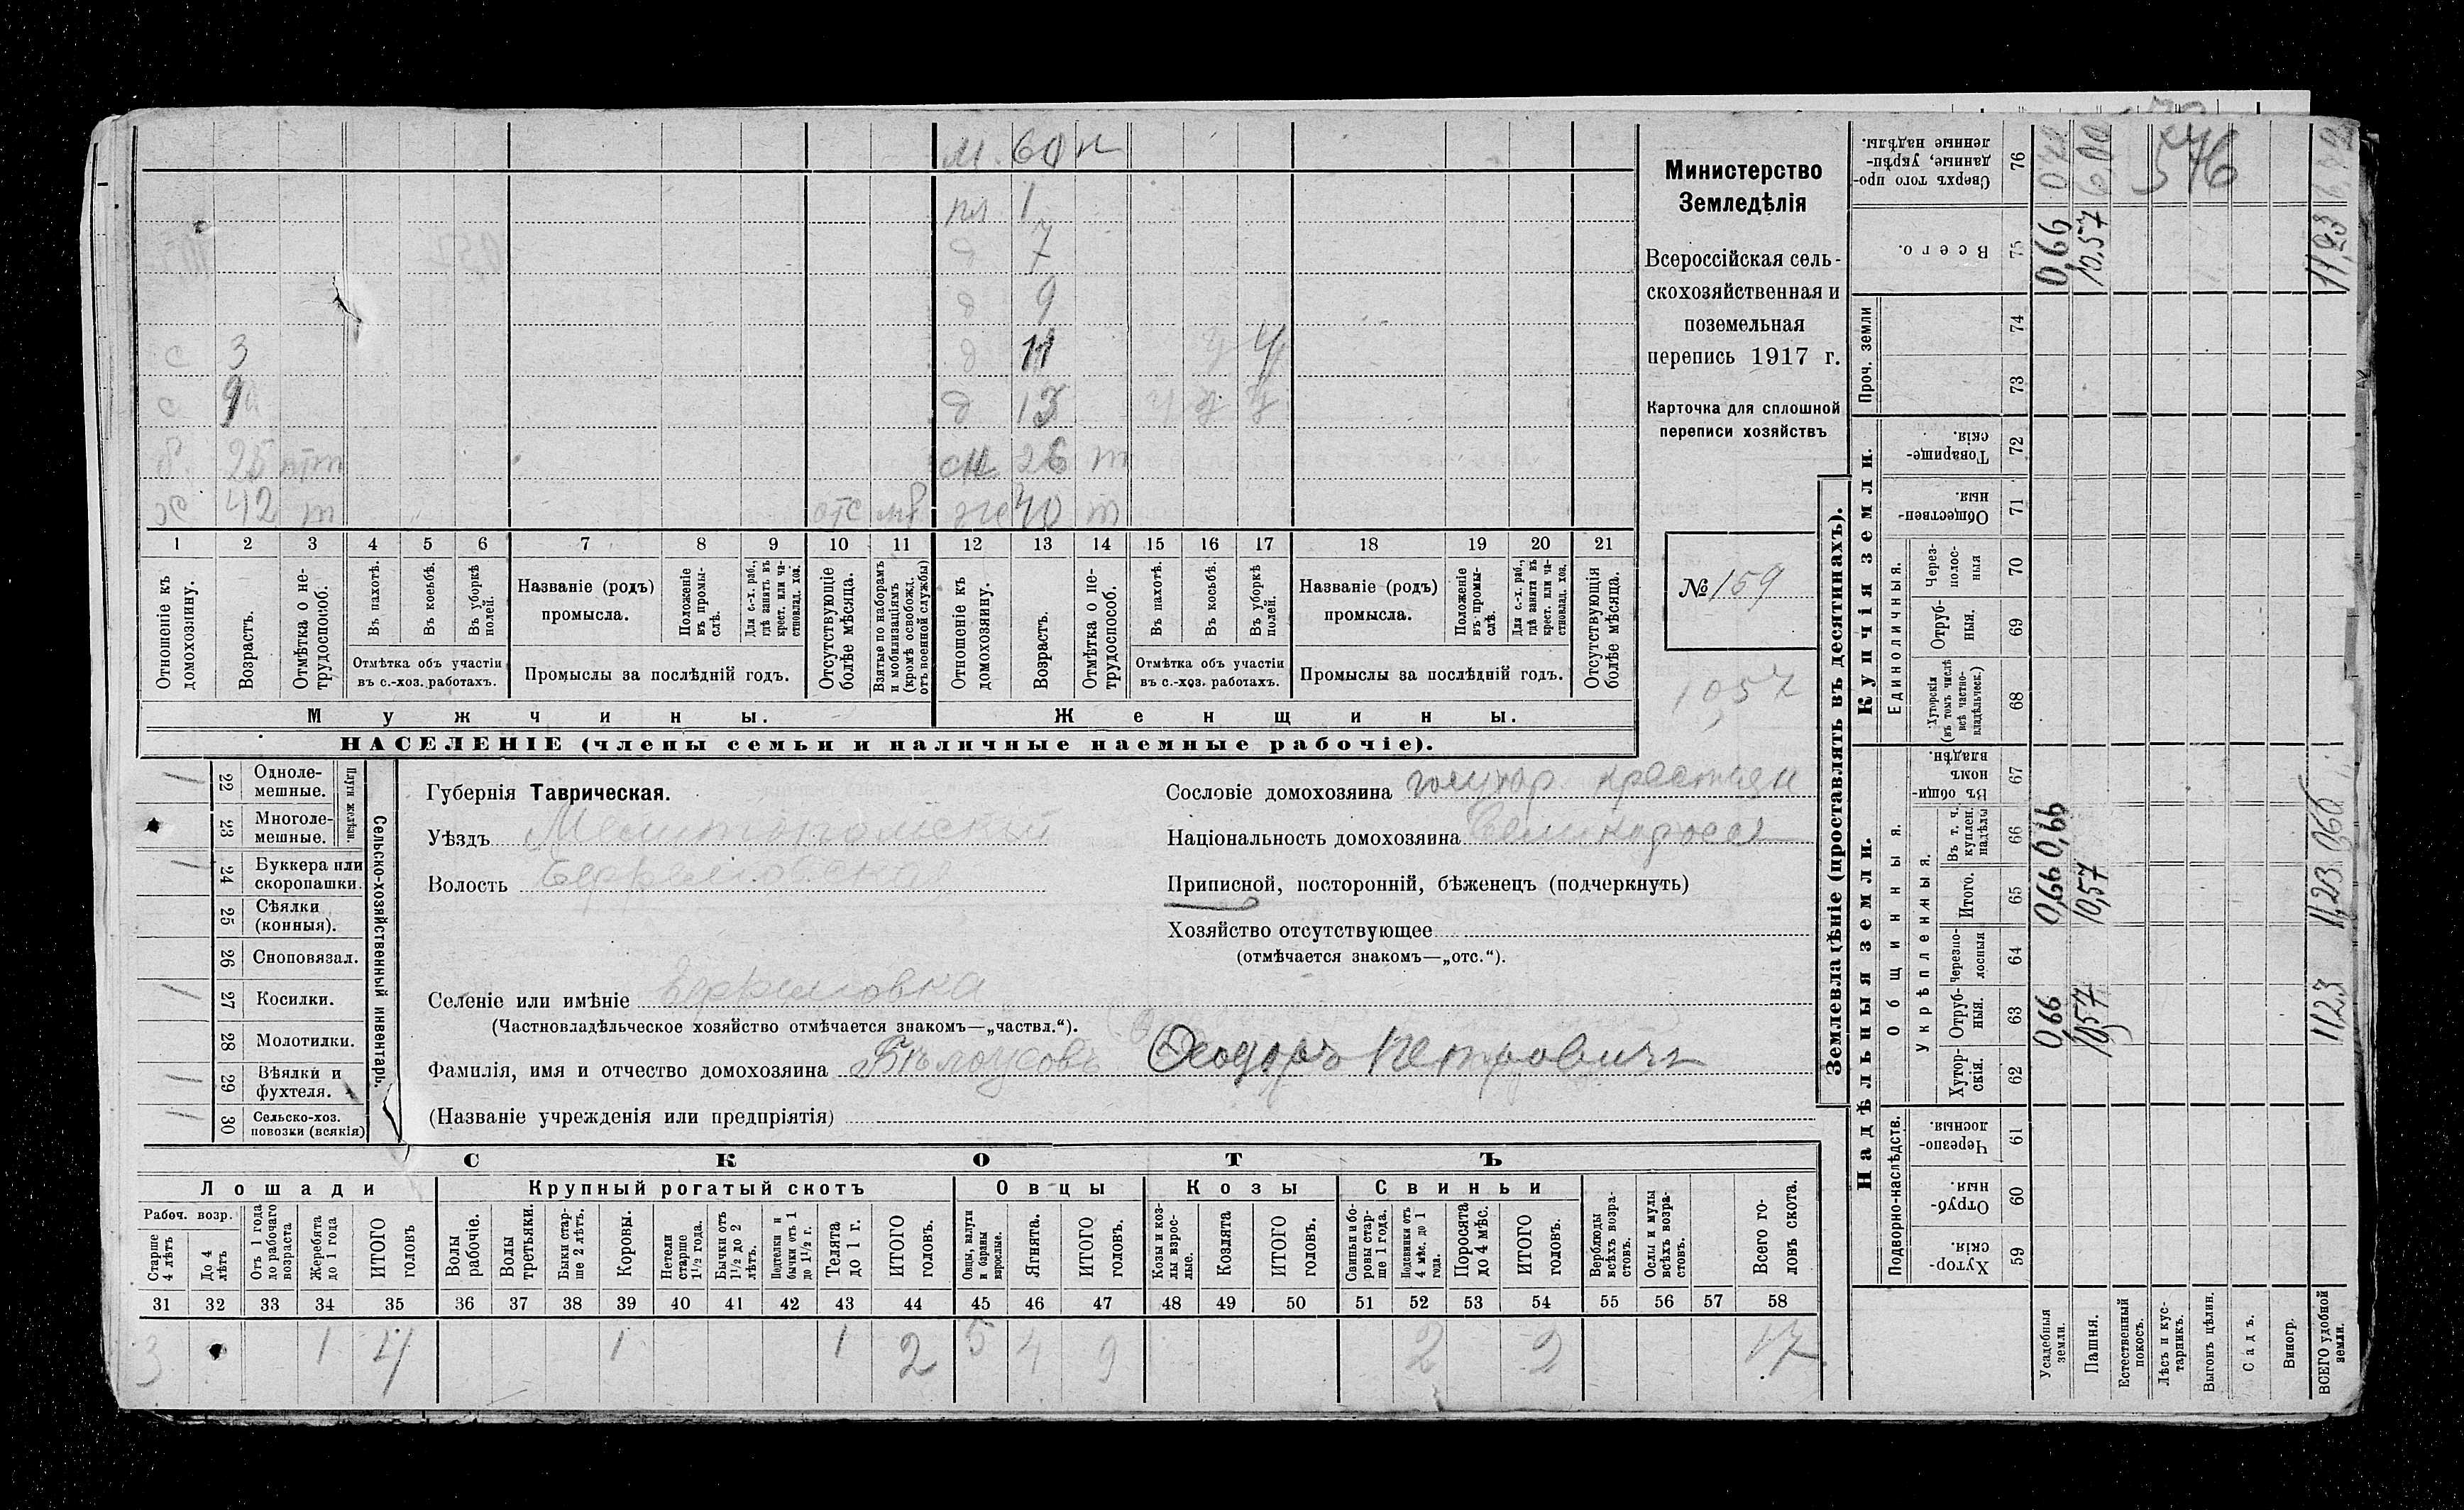 м. 60 н
пл 1
д 7
д 9
с 3 д 11 ч ч
с 9 д 13 ч ч ч
б. 25 сн 26 т
х 42 т отс мб же 40 т
1 2 3 4 5 6 7 8 9 10 11 12 13 14 15 16 17 18 19 20 21
Отношеніе къ домохозяину.
Возрастъ.
Отмѣтка о не-трудоспособ.
Въ пахотѣ.
Въ косьбѣ.
Въ уборкѣ полей.
Отмѣтка объ участіи
въ с.-хоз. работахъ.
Названіе (родъ)
промысла.
Положеніе въ промы-слѣ.
Для с.-х. раб., гдѣ занятъ въ крест. или ча-стновлад. хоз.
Промыслы за послѣдній годъ.
Отсутствующіе болѣе мѣсяца.
Взятые по наборамъ и мобилизаціямъ (кромѣ освобожд. отъ военной службы)
Отношеніе къ домохозяину.
Возрастъ.
Отмѣтка о не-трудоспособ.
Въ пахотѣ.
Въ косьбѣ.
Въ уборкѣ полей.
Отмѣтка объ участіи
въ с.-хоз. работахъ.
Названіе (родъ)
промысла.
Положеніе въ промы-слѣ.
Для с.-х. раб., гдѣ занята въ крест. или ча-стновлад. хоз.
Промыслы за послѣдній годъ.
Отсутствующія болѣе мѣсяца.
Мужчины. Женщины.
НАСЕЛЕНІЕ (члены семьи и наличные наемные рабочіе).
Министерство
Земледѣлія
Всероссійская сель-
скохозяйственная и
поземельная
перепись 1917 г.
Карточка для сплошной
переписи хозяйствъ
№ 159
1057
Сельско-хозяйственный инвентарь.
Плуги желѣзн.
1 22 Одноле-мешные.
23 Многоле-мешные.
1 24 Буккера или скоропашки.
25 Сѣялки (конныя).
26 Сноповязал.
1 27 Косилки.
28 Молотилки.
1 29 Вѣялки и фухтеля.
1 30 Сельско-хоз. повозки (всякія)
Губернія Таврическая.
Уѣздъ Мелитопольскій
Волость Ефремовская
Селеніе или имѣніе Ефремовка
(Частновладѣльческое хозяйство отмѣчается знакомъ—„частвл.“).
Фамилія, имя и отчество домохозяина Бѣлоусовъ Ѳеодоръ Петровичъ
(Названіе учрежденія или предпріятія)
Сословіе домохозяина крестьян
Національность домохозяина Великороссъ
Приписной, посторонній, бѣженецъ (подчеркнуть)
Хозяйство отсутствующее
(отмѣчается знакомъ—„отс.“).
СКОТЪ
Лошади Крупный рогатый скотъ Овцы Козы Свиньи
Рабоч. возр.
Старше 4 лѣтъ
До 4 лѣтъ
Отъ 1 года до рабочаго возраста
Жеребята до 1 года
ИТОГО головъ
Волы рабочіе.
Волы третьяки.
Быки стар-ше 2 лѣтъ.
Коровы.
Нетели старше 1½ года.
Бычки отъ 1½ до 2 лѣтъ.
Подтелки и бычки отъ 1 до 1½ г.
Телята до 1 г.
ИТОГО головъ.
Овцы, валухи и бараны взрослые.
Ягнята.
ИТОГО головъ.
Козы и коз-лы взрос-лые.
Козлята
ИТОГО головъ.
Свиньи и бо-ровы стар-ше 1 года.
Подсвинки отъ 4 мѣс. до 1 года.
Поросята до 4 мѣс.
ИТОГО головъ.
Верблюды всѣхъ возра-стовъ.
Ослы и мулы всѣхъ возра-стовъ.
Всего го-ловъ скота.
31 32 33 34 35 36 37 38 39 40 41 42 43 44 45 46 47 48 49 50 51 52 53 54 55 56 57 58
3 1 4 1 1 2 5 4 9 2 2 17
Землевладѣніе (проставлять въ десятинахъ).
Купчія земли.
Надѣльныя земли.
Проч. земли
Сверхъ того про-данные, укрѣп-ленные надѣлы. 76
Всего. 75 0,66 10,57 11,23
576
74
73
Товарище-скія. 72
Обществен-ныя. 71
Единоличныя.
Черезполос-ныя 70
Отруб-ныя. 69
Хуторскія (въ томъ числѣ всѣ частно-владѣльческ.) 68
Общинныя.
Въ общи-номъ владѣн. 67
Укрѣпленныя.
Въ т. ч. куплен. надѣлы 66 0,66
Итого. 65 0,66 10,57 11,23
Черезпо-лосныя 64
Отруб-ныя. 63 0,66 10,57 11,23
Хутор-скія. 62
Подворно-наслѣдств.
Черезпо-лосныя. 61
Отруб-ныя. 60
Хутор-скія. 59
Усадебныя земли.
Пашня.
Естественный покосъ.
Лѣсъ и кус-тарникъ.
Выгонъ цѣлин.
Садъ.
Виногр.
ВСЕГО удобной земли.